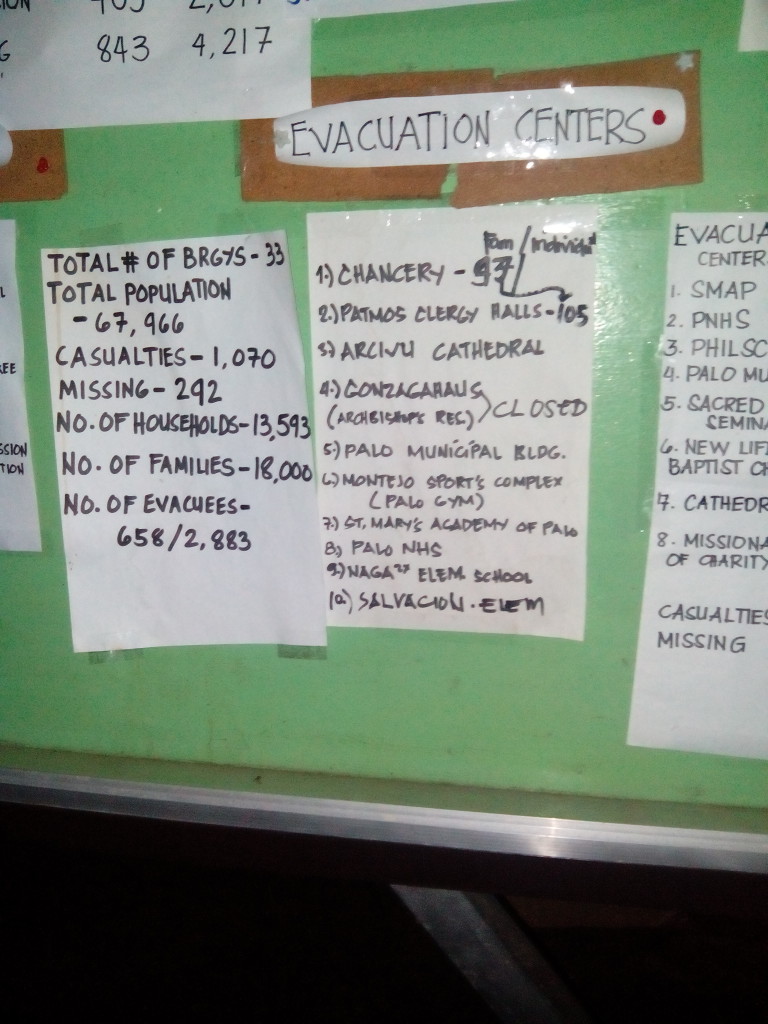 843 4,217
EVACUATION CENTERS
TOTAL # OF BRGYS - 33
TOTAL POPULATION
- 67,966
CASUALTIES - 1,070
MISSING - 292
NO. OF HOUSEHOLDS - 13,593
NO. OF FAMILIES - 18,000
NO. OF EVACUEES -
658/2,883
Fam / Individ
1.) CHANCERY - 97
2.) PATMOS CLERGY HALLS - 105
3) ARCIVU CATHEDRAL
4.) GONZAGAHAUS
(ARCHBISHOP'S RES.) CLOSED
5.) PALO MUNICIPAL BLDG.
6.) MONTEJO SPORT'S COMPLEX
(PALO GYM)
7.) ST. MARY'S ACADEMY OF PALO
8.) PALO NHS
9.) NAGA ELEM. SCHOOL
10.) SALVACION. ELEM
EVACUA
CENTER
1. SMAP
2. PNHS
3. PHILSC
4. PALO MU
5. SACRED
SEMINA
6. NEW LIF
BAPTIST CH
7. CATHEDR
8. MISSIONA
OF CHARITY
CASUALTIES
MISSING